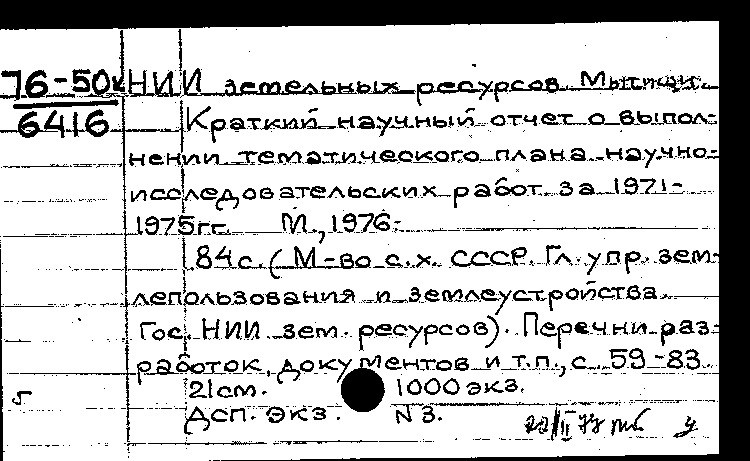 76-50к НИИ земельных ресурсов. Мытищи.
6416 Краткий научный отчет о выпол-
нении тематического плана научно-
исследовательских работ за 1971-
1975гг. М., 1976-
84с. (М-во с.х. СССР. Гл. упр. зем-
лепользования и землеустройства.
Гос. НИИ зем. ресурсов). Перечни раз-
работок, документов и т.п., с. 59-83.
21см. 1000 экз.
Дсп. Экз. N 3.